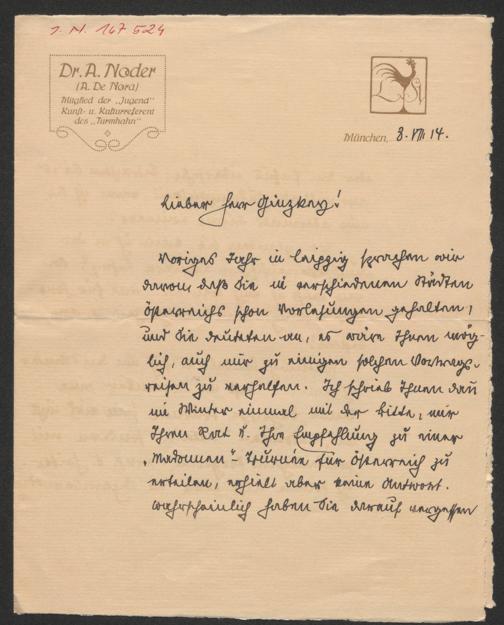 J. N. 167.524
Dr. A. Noder
(A. De Nora)
Mitglied der „Jugend"
Kunst- u. Kulturreferent
des „Turmhahn"
München, 8. VII 14.
Lieber Herr Ginzkey!
Voriges Jahr in Leipzig sprachen wir
davon, daß Sie in verschiedenen Städten
Österreichs schon Vorlesungen gehalten,
und Sie deuteten an, es wäre Ihnen mög-
lich, auch mir zu einigen solchen Vortrags-
reisen zu verhelfen. Ich schrieb Ihnen dan
im Winter einmal mit der Bitte, mir
Ihren Rat u. Ihre Empfehlung zu einer
„Madonnen"-Tournée für Österreich zu
erteilen, erhielt aber keine Antwort.
Wahrscheinlich haben Sie darauf vergessen